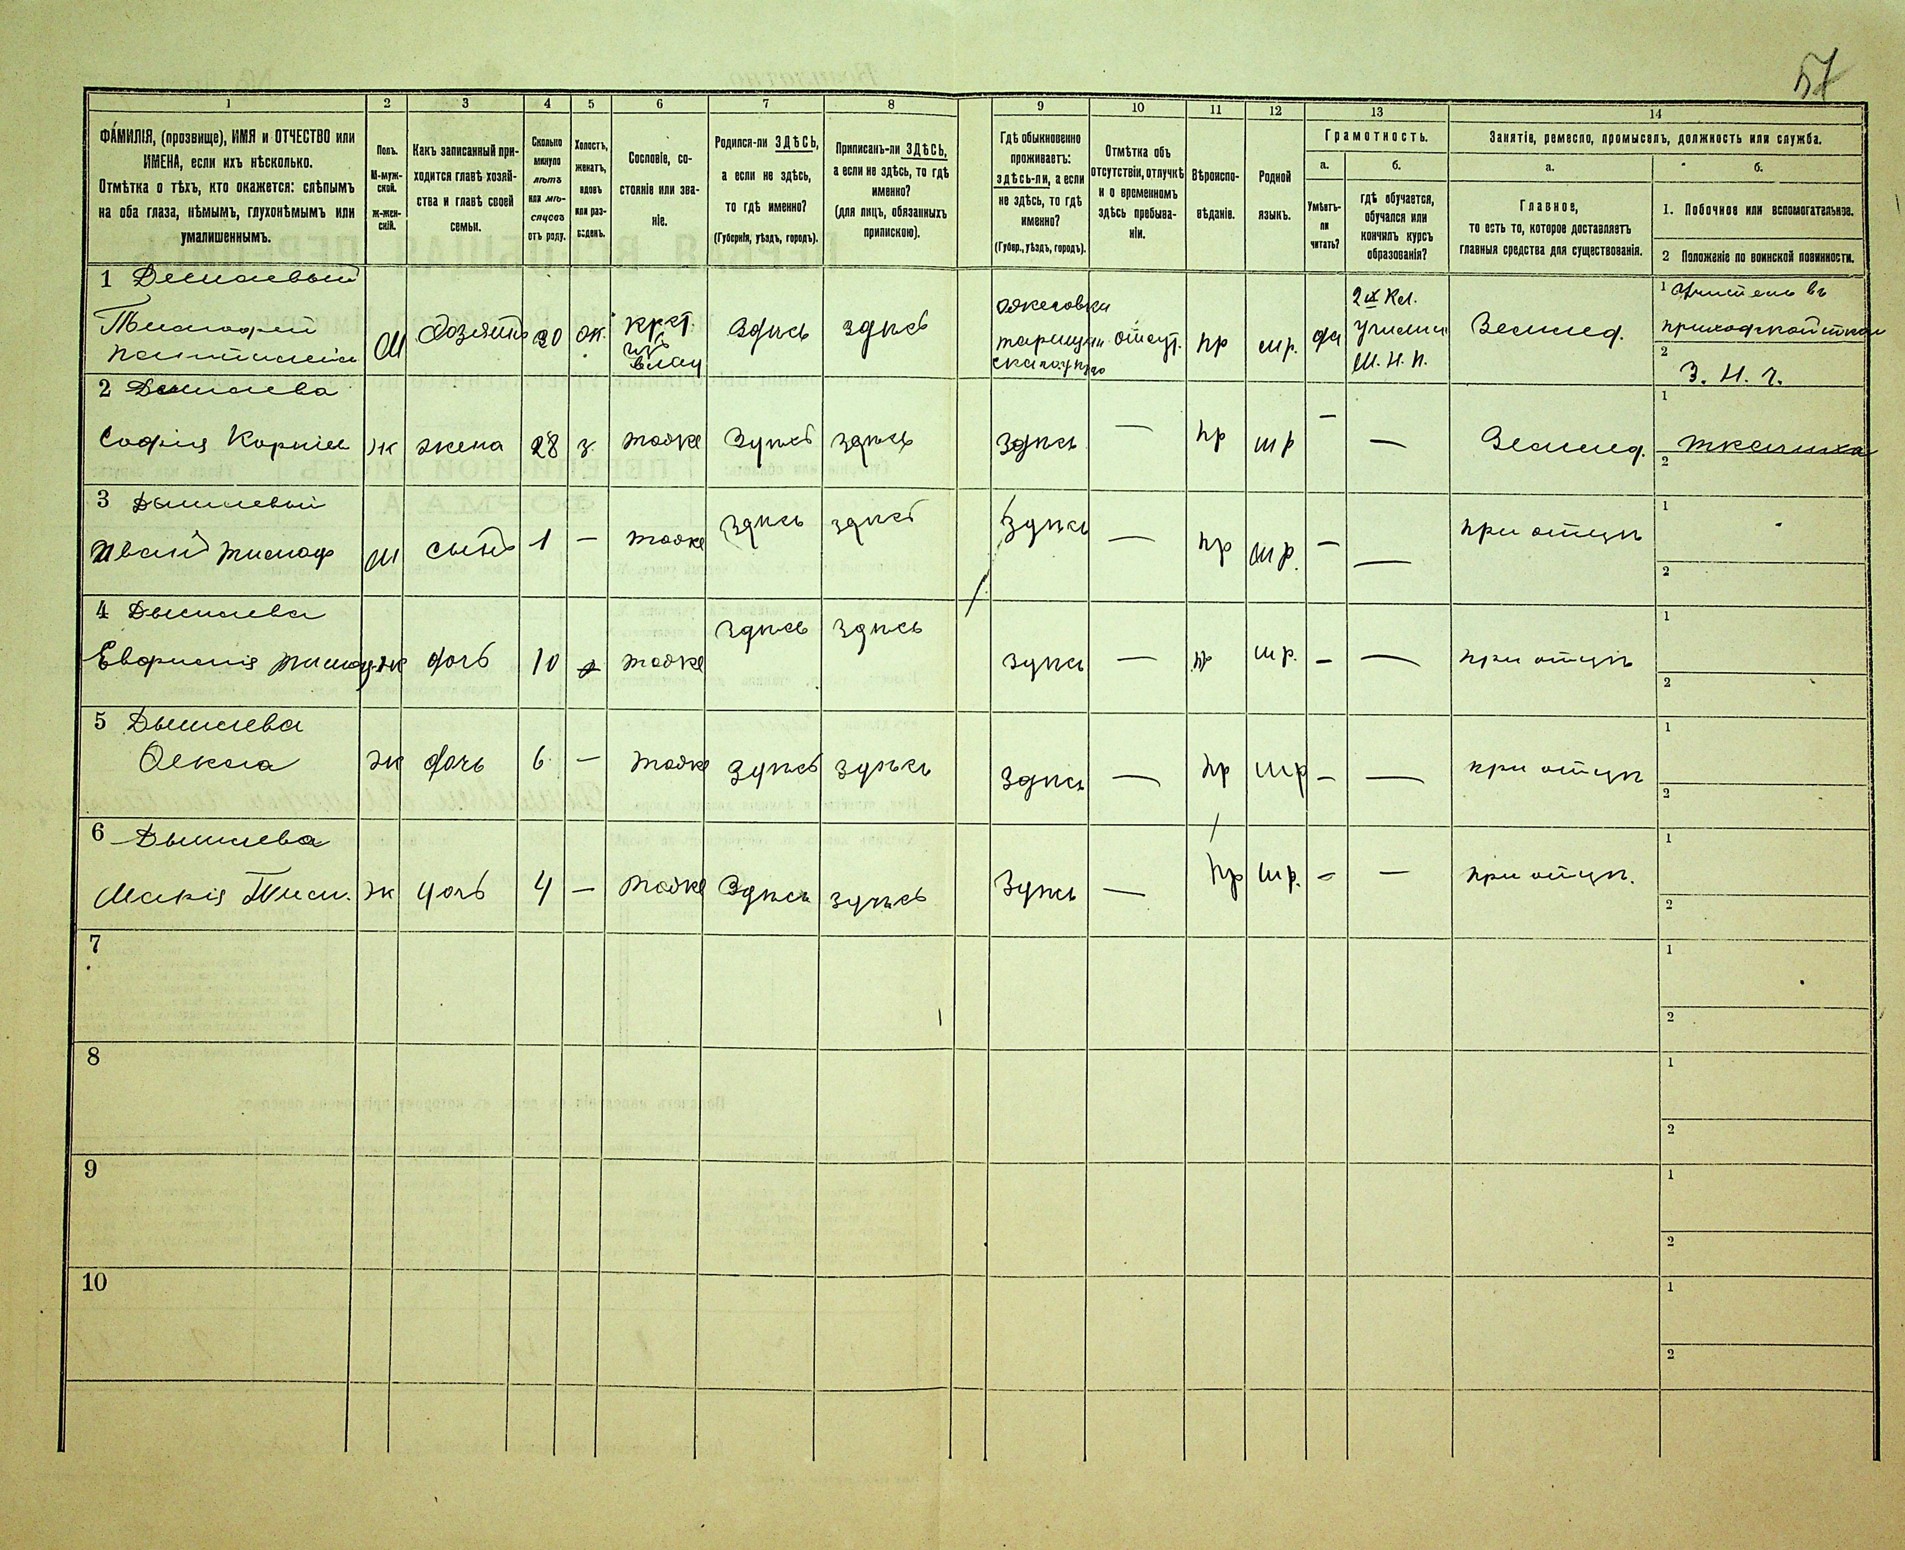 57
1 2 3 4 5 6 7 8 9 10 11 12 13 14
ФАМИЛІЯ, (прозвище), ИМЯ и ОТЧЕСТВО или
ИМЕНА, если ихъ нѣсколько.
Отмѣтка о тѣхъ, кто окажется: слѣпымъ
на оба глаза, нѣмымъ, глухонѣмымъ или
умалишеннымъ.
Полъ.
М-муж-
ской.
ж-жен-
скій.
Какъ записанный при-
ходится главѣ хозяй-
ства и главѣ своей
семьи.
Сколько
минуло
лѣтъ
или мѣ-
сяцевъ
отъ роду.
Холостъ,
женатъ,
вдовъ
или раз-
веденъ.
Сословіе, со-
стояніе или зва-
ніе.
Родился-ли ЗДѢСЬ,
а если не здѣсь,
то гдѣ именно?
(Губернія, уѣздъ, городъ).
Приписанъ-ли ЗДѢСЬ,
а если не здѣсь, то гдѣ
именно?
(для лицъ, обязанныхъ
припискою).
Гдѣ обыкновенно
проживаетъ:
здѣсь-ли, а если
не здѣсь, то гдѣ
именно?
(Губер., уѣздъ, городъ).
Отмѣтка объ
отсутствіи, отлучкѣ
и о временномъ
здѣсь пребыва-
ніи.
Вѣроиспо-
вѣданіе.
Родной
языкъ.
Грамотность.
а.
Умѣетъ-
ли
читать?
б.
гдѣ обучается,
обучался или
кончилъ курсъ
образованія?
Занятіе, ремесло, промыселъ, должность или служба.
а.
Главное,
то есть то, которое доставляетъ
главныя средства для существованія.
б.
1. Побочное или вспомогательное.
2 Положеніе по воинской повинности.
1
М хозяинъ 30 ж. крст. здѣсь здѣсь отсут. пр мр. да 2хъ кл. Землед. 1 Учитель въ
изъ училищ приходской школ
влад М. Н. П. 2 З. Н. Ч.
2
Софія Корніи ж жена 28 з. тоже здѣсь здѣсь здѣсь — пр мр — — Землед. 1 ткачиха
2
3 Дышлевый
Иванъ Тимоф М сынъ 1 — тоже здѣсь здѣсь здѣсь — пр мр. — — при отцѣ 1
2
4 Дышлева
ж дочь 10 тоже здѣсь здѣсь здѣсь — пр мр. — — при отцѣ 1
2
5 Дышлева
ж дочь 6 — тоже здѣсь здѣсь здѣсь — пр мр — — при отцѣ 1
2
6 Дышлева
Марія Тим. ж дочь 4 — тоже здѣсь здѣсь здѣсь — пр мр. — — при отцѣ. 1
2
7 1
2
8 1
2
9 1
2
10 1
2